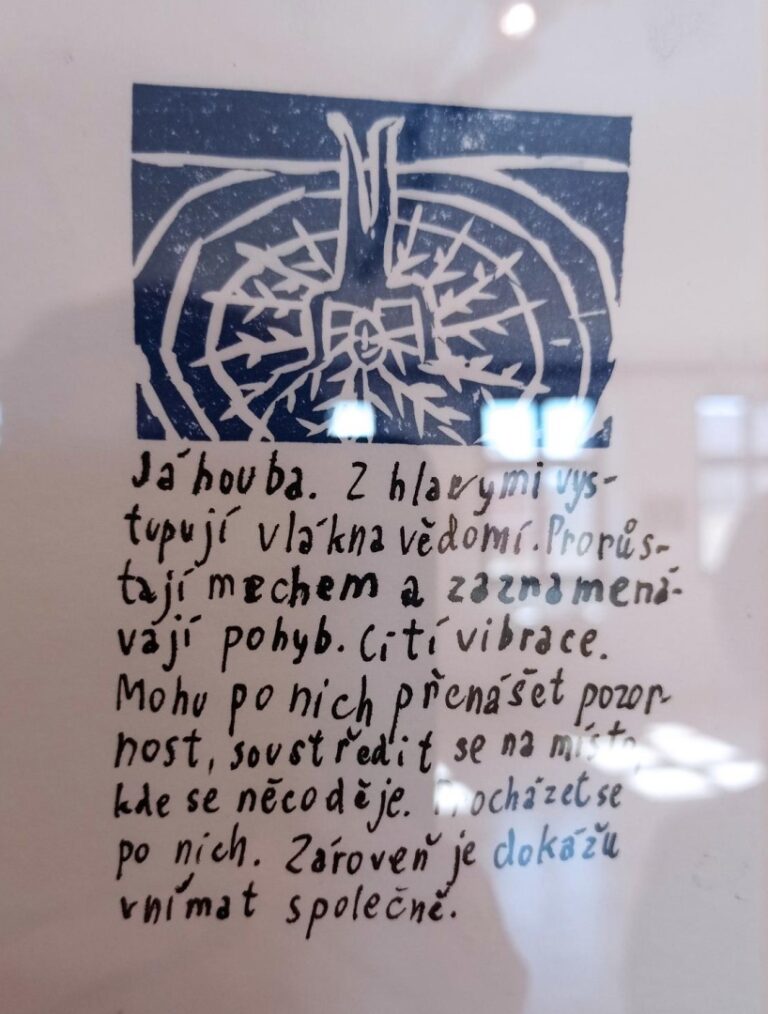 Já houba. Z hlavy mi vys-
tupují vlákna vědomí. Prorůs-
tají mechem a zaznamená-
vají pohyb. Cítí vibrace.
Mohu po nich přenášet pozor-
nost, soustředit se na místo,
kde se něco děje. Procházet se
po nich. Zároveň je dokážu
vnímat společně.